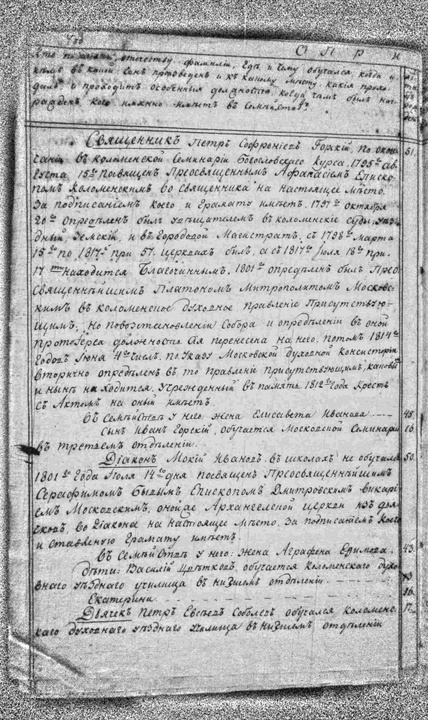 О П Р И
Кто по имени, отечеству, фамилии, где и чему обучался, когда и
кемъ въ какой чинъ произведенъ и къ какому мѣсту, какія прохо-
дилъ и проходитъ особенныя должности, когда чемъ былъ наг-
ражденъ кого имянно имѣетъ въ семействѣ?
Священникъ Петръ Софроніевъ Горскій, по окон- 51.
чаніи въ коломенской Семинаріи богословскаго курса, 1795го ав-
густа 15го посвященъ Преосвященнымъ Афанасіемъ Еписко-
помъ Коломенскимъ во священника на настоящее мѣсто.
За подписаніемъ коего и грамату имѣетъ. 1797го октября
20го опредѣленъ былъ увѣщателемъ въ коломенскіе суды Уѣз-
дный, Земскій, и въ Городовой Магистратъ, съ 1798го марта
15го по 1817го при 57. церквахъ былъ, а съ 1817го Іюля 18го при
17ти находится Благочиннымъ. 1801го опредѣленъ былъ Прео-
священнѣйшимъ Платономъ Митрополитомъ Московс-
кимъ въ коломенское духовное правленіе Присутствую-
щимъ; но по возстановленіи Собора и опредѣленіи въ оной
протоіерея должность сія перенесена на него. потомъ 1814го
Годов Іюня 4го числ. по Указу Московской духовной консисторіи
вторично опредѣленъ въ то правленіе присутствующимъ, каковымъ
и нынѣ находится. Учрежденный въ память 1812го Года Крестъ
съ Актомъ на оный имѣетъ.
Въ семействѣ у него: жена Елисавета Иванова 48.
Сынъ Иванъ Горскій, обучается Московской Семинаріи 16.
въ третьемъ отдѣленіи.
Діаконъ Мокій Ивановъ въ школахъ не обучался 50.
1801го Года Іюля 14го дня посвященъ Преосвященнѣйшимъ
Серафимомъ бывшимъ Епископомъ Дмитровскимъ викарі-
емъ Московскимъ, оной же Архангельской церкви изъ дья-
чковъ, во діакона на настоящее мѣсто. За подписаніемъ коего
и ставленную грамату имѣетъ.
Въ семействѣ у него: жена Аграфена Ефимова. 43.
дѣти: Василій Цвѣтковъ обучается Коломенскаго духо-
внаго уѣзднаго училища въ низшемъ отдѣленіи 13
Екатерина 16.
Дьячекъ Петръ Соболевъ обучался коломенс-
каго духовнаго уѣзднаго училища въ низшемъ отдѣленіи